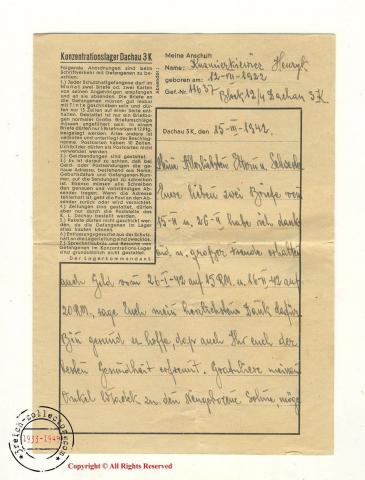 Konzentrationslager Dachau 3 K
Folgende Anordnungen sind beim
Schriftverkehr mit Gefangenen zu be-
achten:
1.) Jeder Schutzhaftgefangene darf im
Monat zwei Briefe od. zwei Karten
von seinen Angehörigen empfangen
und an sie absenden. Die Briefe an
die Gefangenen müssen gut lesbar
mit Tinte geschrieben sein und dür-
fen nur 15 Zeilen auf einer Seite ent-
halten. Gestattet ist nur ein Briefbo-
gen normaler Größe. Briefumschläge
müssen ungefüttert sein. In einem
Briefe dürfen nur 5 Briefmarken à 12 Pfg.
beigelegt werden. Alles andere ist
verboten und unterliegt der Beschlag-
nahme. Postkarten haben 10 Zeilen.
Lichtbilder dürfen als Postkarten nicht
verwendet werden.
2.) Geldsendungen sind gestattet.
3.) Es ist darauf zu achten, daß bei
Geld- oder Postsendungen die ge-
naue Adresse, bestehend aus Name,
Geburtsdatum und Gefangenen-Num-
mer, auf die Sendungen zu schreiben
ist.
4.) Zeitungen sind gestattet, dürfen
aber nur durch die Poststelle des
K. L. Dachau bestellt werden.
5.) Pakete dürfen nicht geschickt wer-
den, da die Gefangenen im Lager
alles kaufen können.
6.) Entlassungsgesuche aus der Schutz-
haft an die Lagerleitung sind zwecklos.
7.) Sprecherlaubnis und Besuche von
Gefangenen im Konzentrations-Lager
sind grundsätzlich nicht gestattet.
Der Lagerkommandant
Absender:
Meine Anschrift:
Name: Henryk
geboren am: 12-VII-1922
Gef.-Nr. 11637 Block 12/4 Dachau 3 K
Dachau 3 K, den 15-III-1942.
Meine Allerliebsten Eltern u.
Eure lieben zwei Briefe vom
15-II u. 26-II habe ich dank-
end u. großer Freude erhalten
auch Geld vom 26-I-42 auf 15 RM. u. 16-II-42 auf
20 RM., sage Euch mein herzlichsten Dank dafür.
Bin gesund u. hoffe, daß auch Ihr euch der
besten Gesundheit erfreut. Gratuliere meinem
Onkel zu den Neugeborene Sohne, möge
3reich-collector.com
1933-1945
Copyright © All Rights Reserved